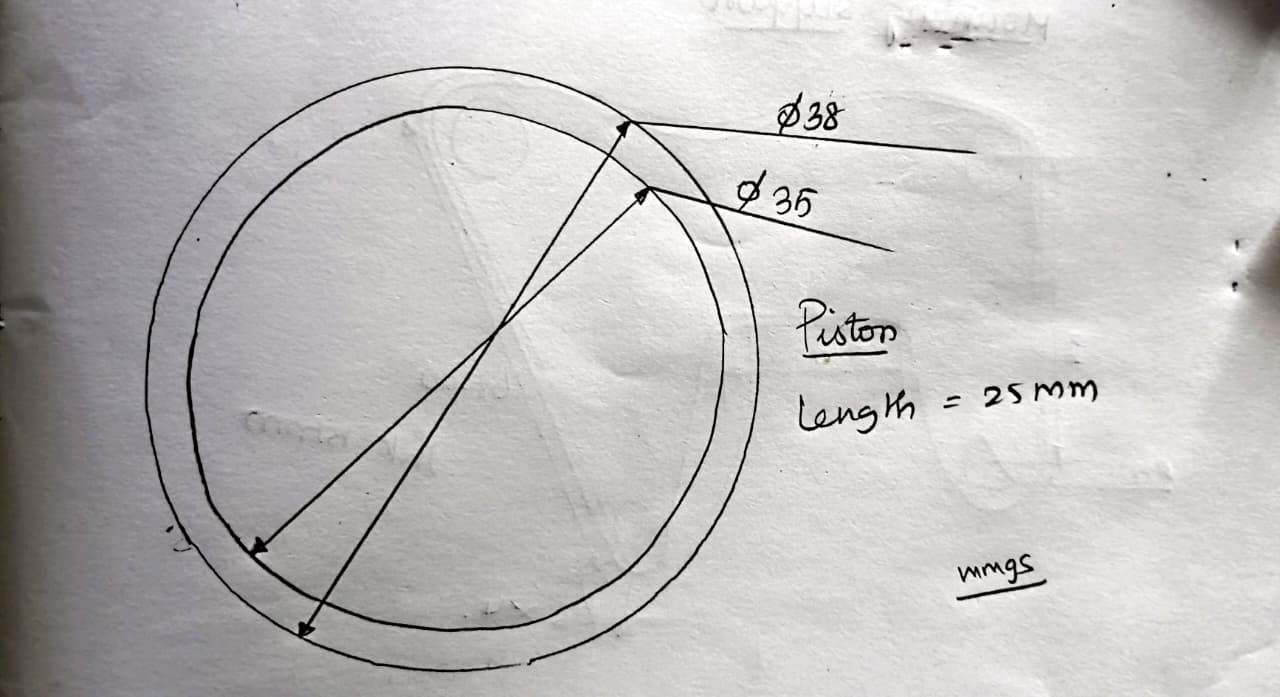 Ø38
Ø35
Piston
Length = 25 mm
mmgs